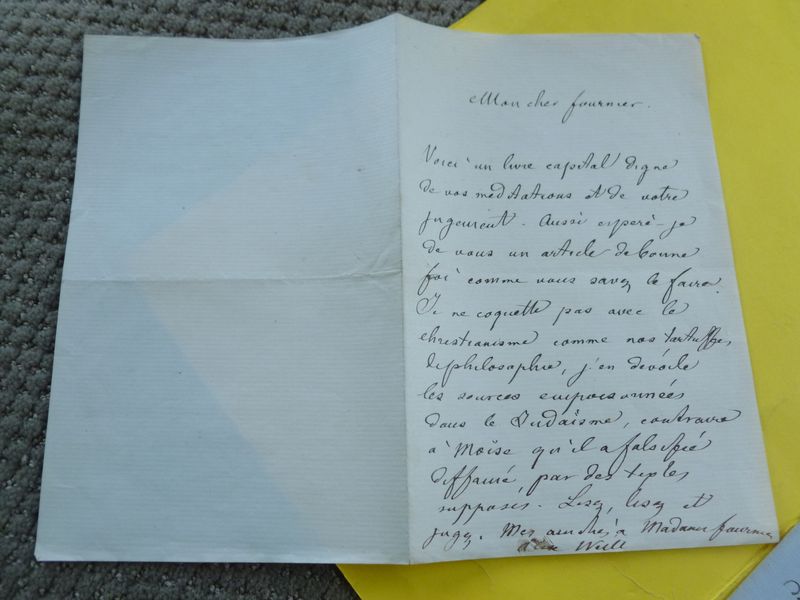 Mon cher fournier.
Voici un livre capital digne
de vos méditations et de votre
jugement. Aussi esperè-je
de vous un article de bonne
foi comme vous savez le faire.
Je ne coquette pas avec le
christianisme comme nos tartuffes
de philosophie, j'en dévoile
les sources empoisonnées
dans le Judaïsme, contraire
à Moïse qu'il a falsifié
diffamé, par des textes
supposés. Lisez, lisez et
jugez. Mes à Madame fournier
Alex Weill